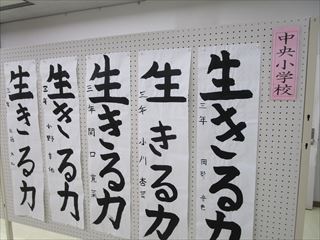 中央小学校
生きる力
三年
生きる力
三年 小川杏
生きる力
三年 関口
生きる力
三年
生きる力
三年